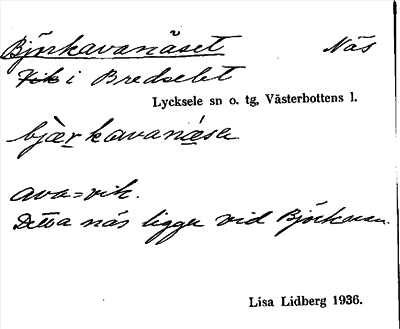 Björkavanäset Näs
Vik i Bredselet
Lycksele sn o. tg, Västerbottens l.
bjærkavanäsa
ava = vik.
Detta näs ligger vid Björkavan.
Lisa Lidberg 1936.